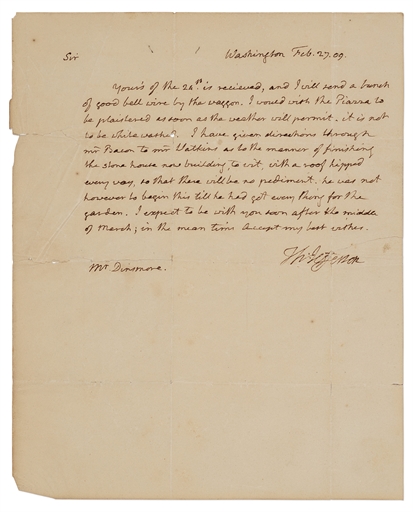 Sir
Washington Feb. 27. 09.
Yours of the 24th is recieved, and I will send a bunch
of good bell wire by the waggon. I would wish the Piazza to
be plaistered as soon as the weather will permit. it is not
to be white washed. I have given directions through
mr Bacon to mr Watkins as to the manner of finishing
the stone house now building, to wit, with a roof hipped
every way, so that there will be no pediment. he was not
however to begin this till he had got every thing for the
garden. I expect to be with you soon after the middle
of March; in the mean time accept my best wishes.
Th: Jefferson
Mr Dinsmore.